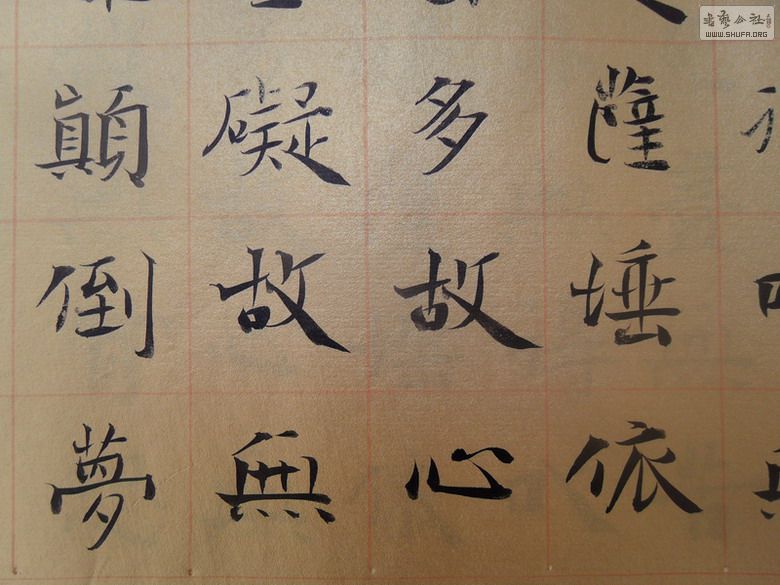 薩埵依
多故心
礙故無
顛倒夢
書藝公社
WWW.SHUFA.ORG